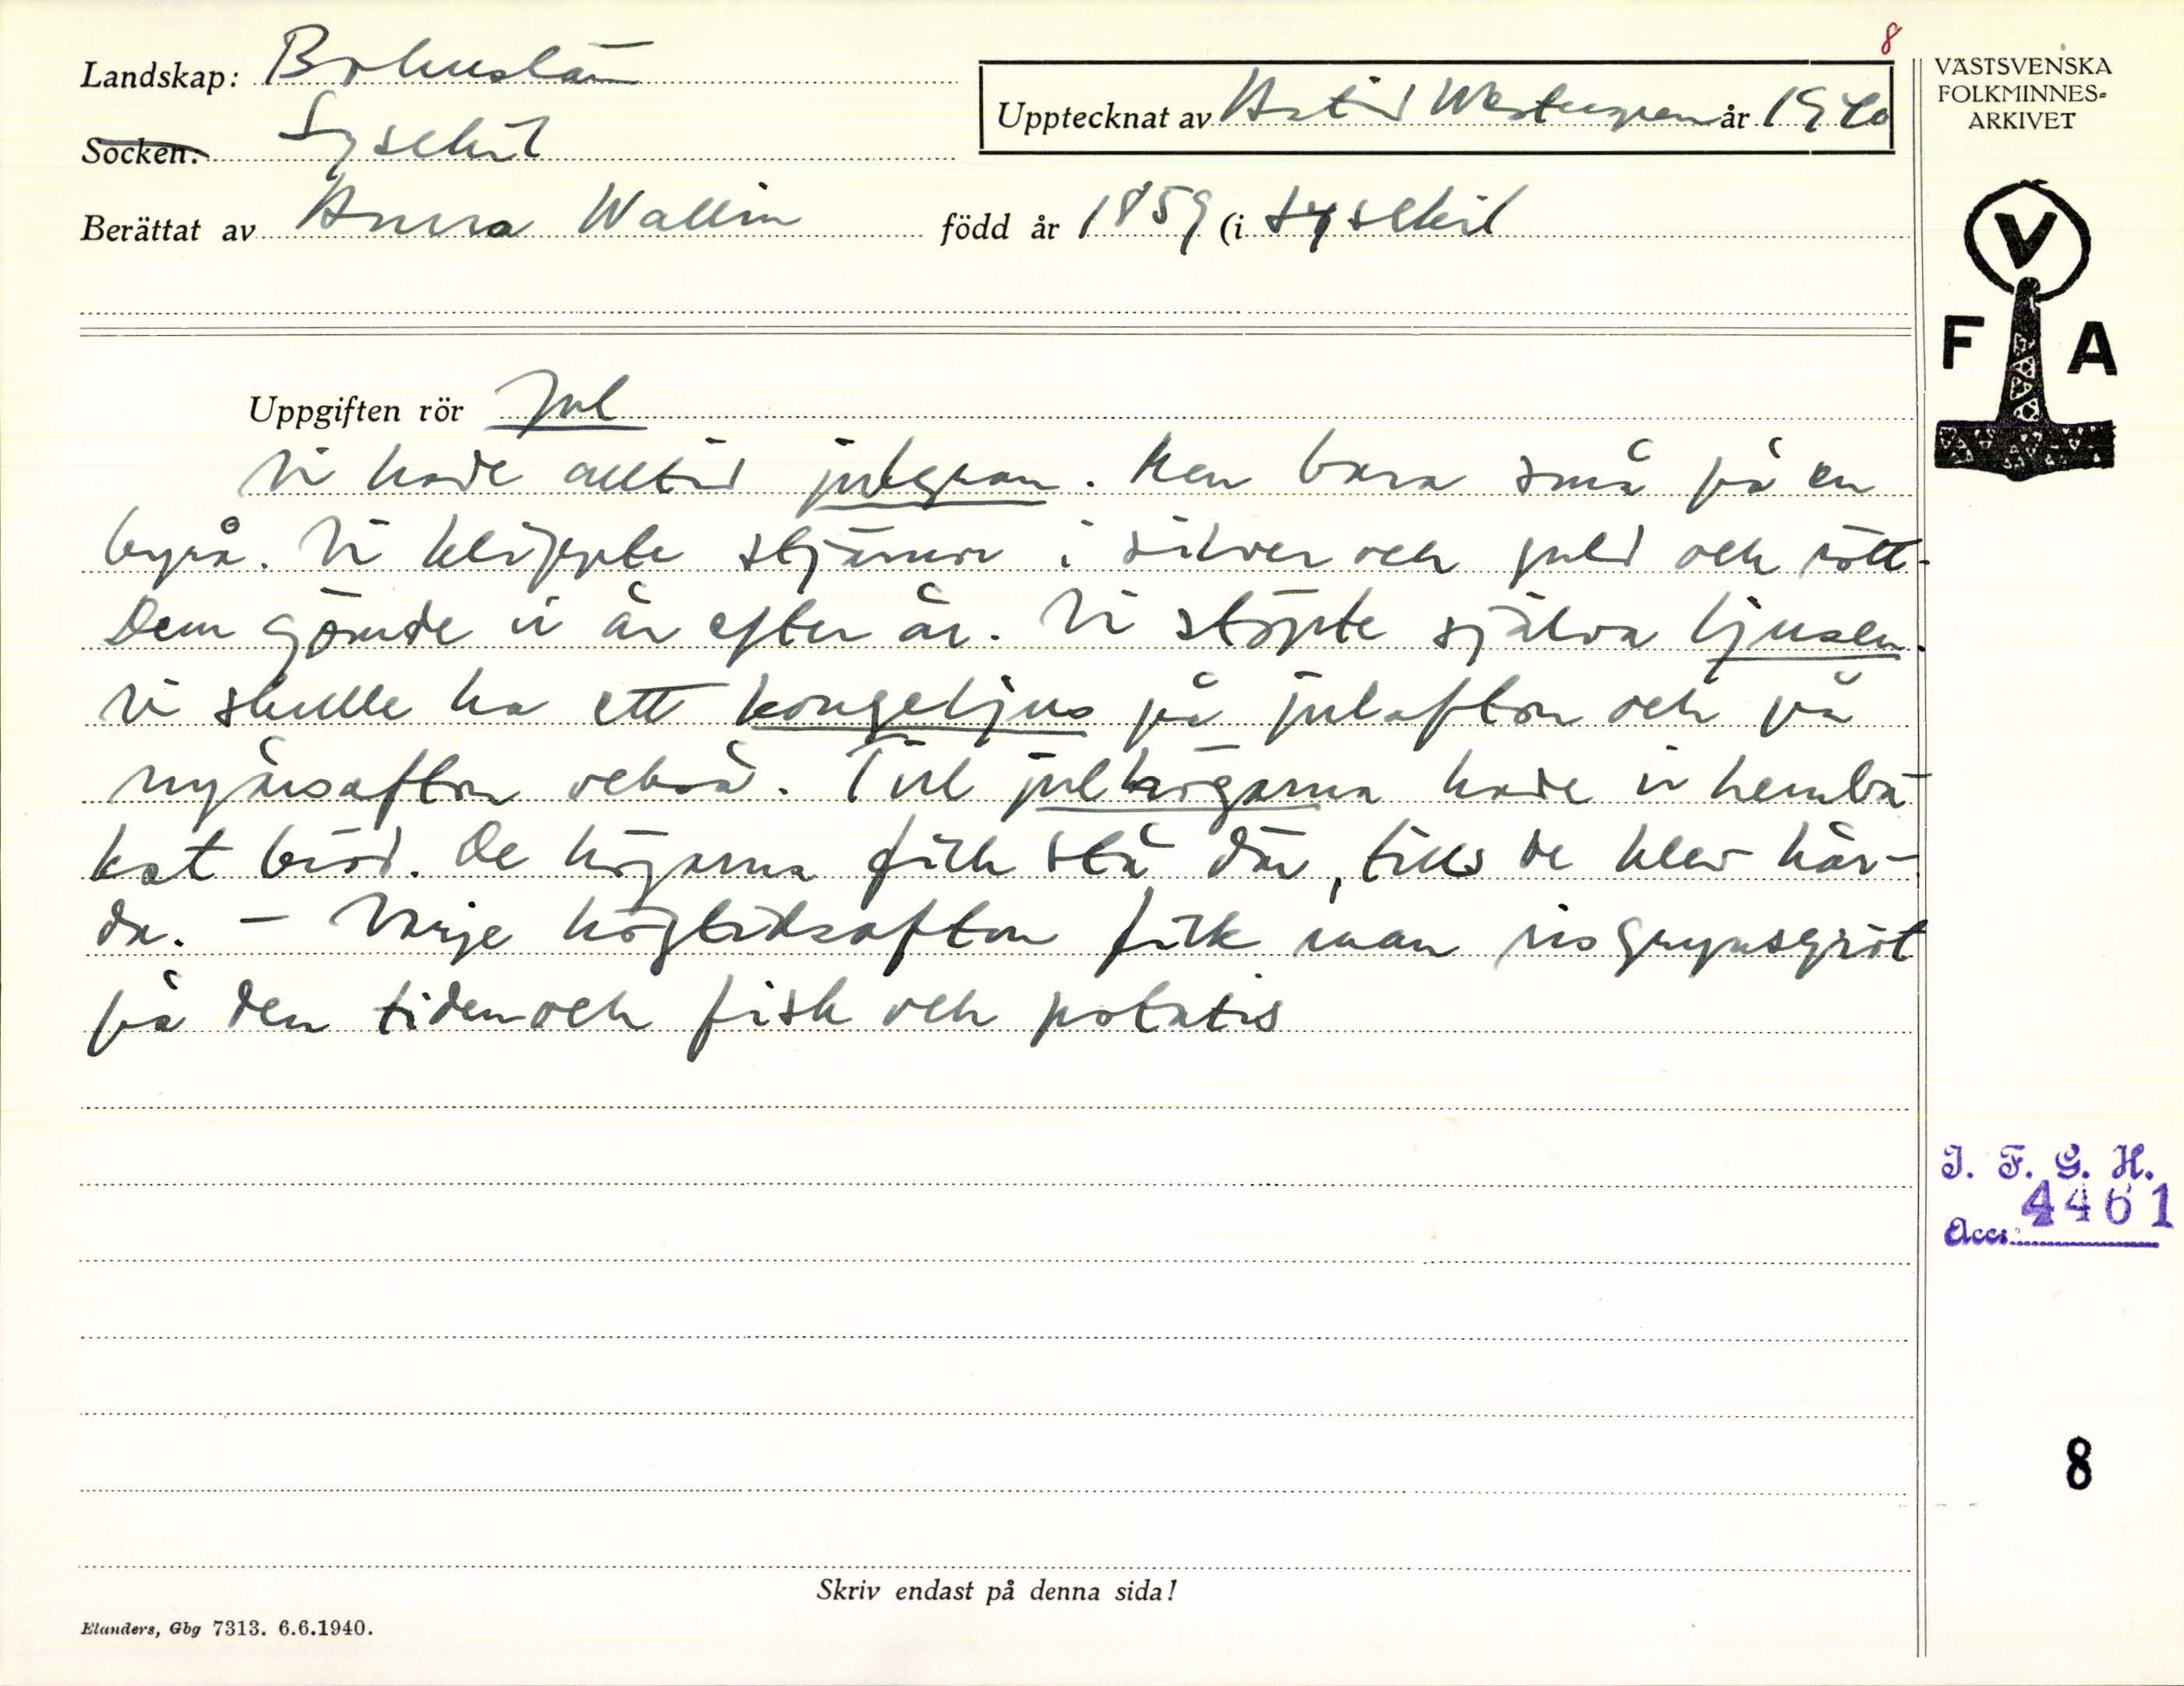 8
Landskap: Bohuslän
Socken: Lysekil
Upptecknat av Astrid Westergren år 1940
Berättat av Anna Wallin född år 1859 (i Lysekil
VÄSTSVENSKA
FOLKMINNES-
ARKIVET
V
F A
Uppgiften rör Jul
Vi hade alltid julgran. Men bara små på en
byrå. Vi klippte stjärnor i silver och guld och rött.
Dem gömde vi år efter år. Vi stöpte själva ljusen.
Vi skulle ha ett kongeljus på julafton och på
nyårsafton också. Till julhögarna hade vi hemba-
kat bröd. De högarna fick stå där, tills de blev hår-
da. - Varje högtidsafton fick man risgrynsgröt
på den tiden och fisk och potatis
I. F. G. H.
Acc. 4461
8
Skriv endast på denna sida!
Elanders, Gbg 7313. 6.6.1940.